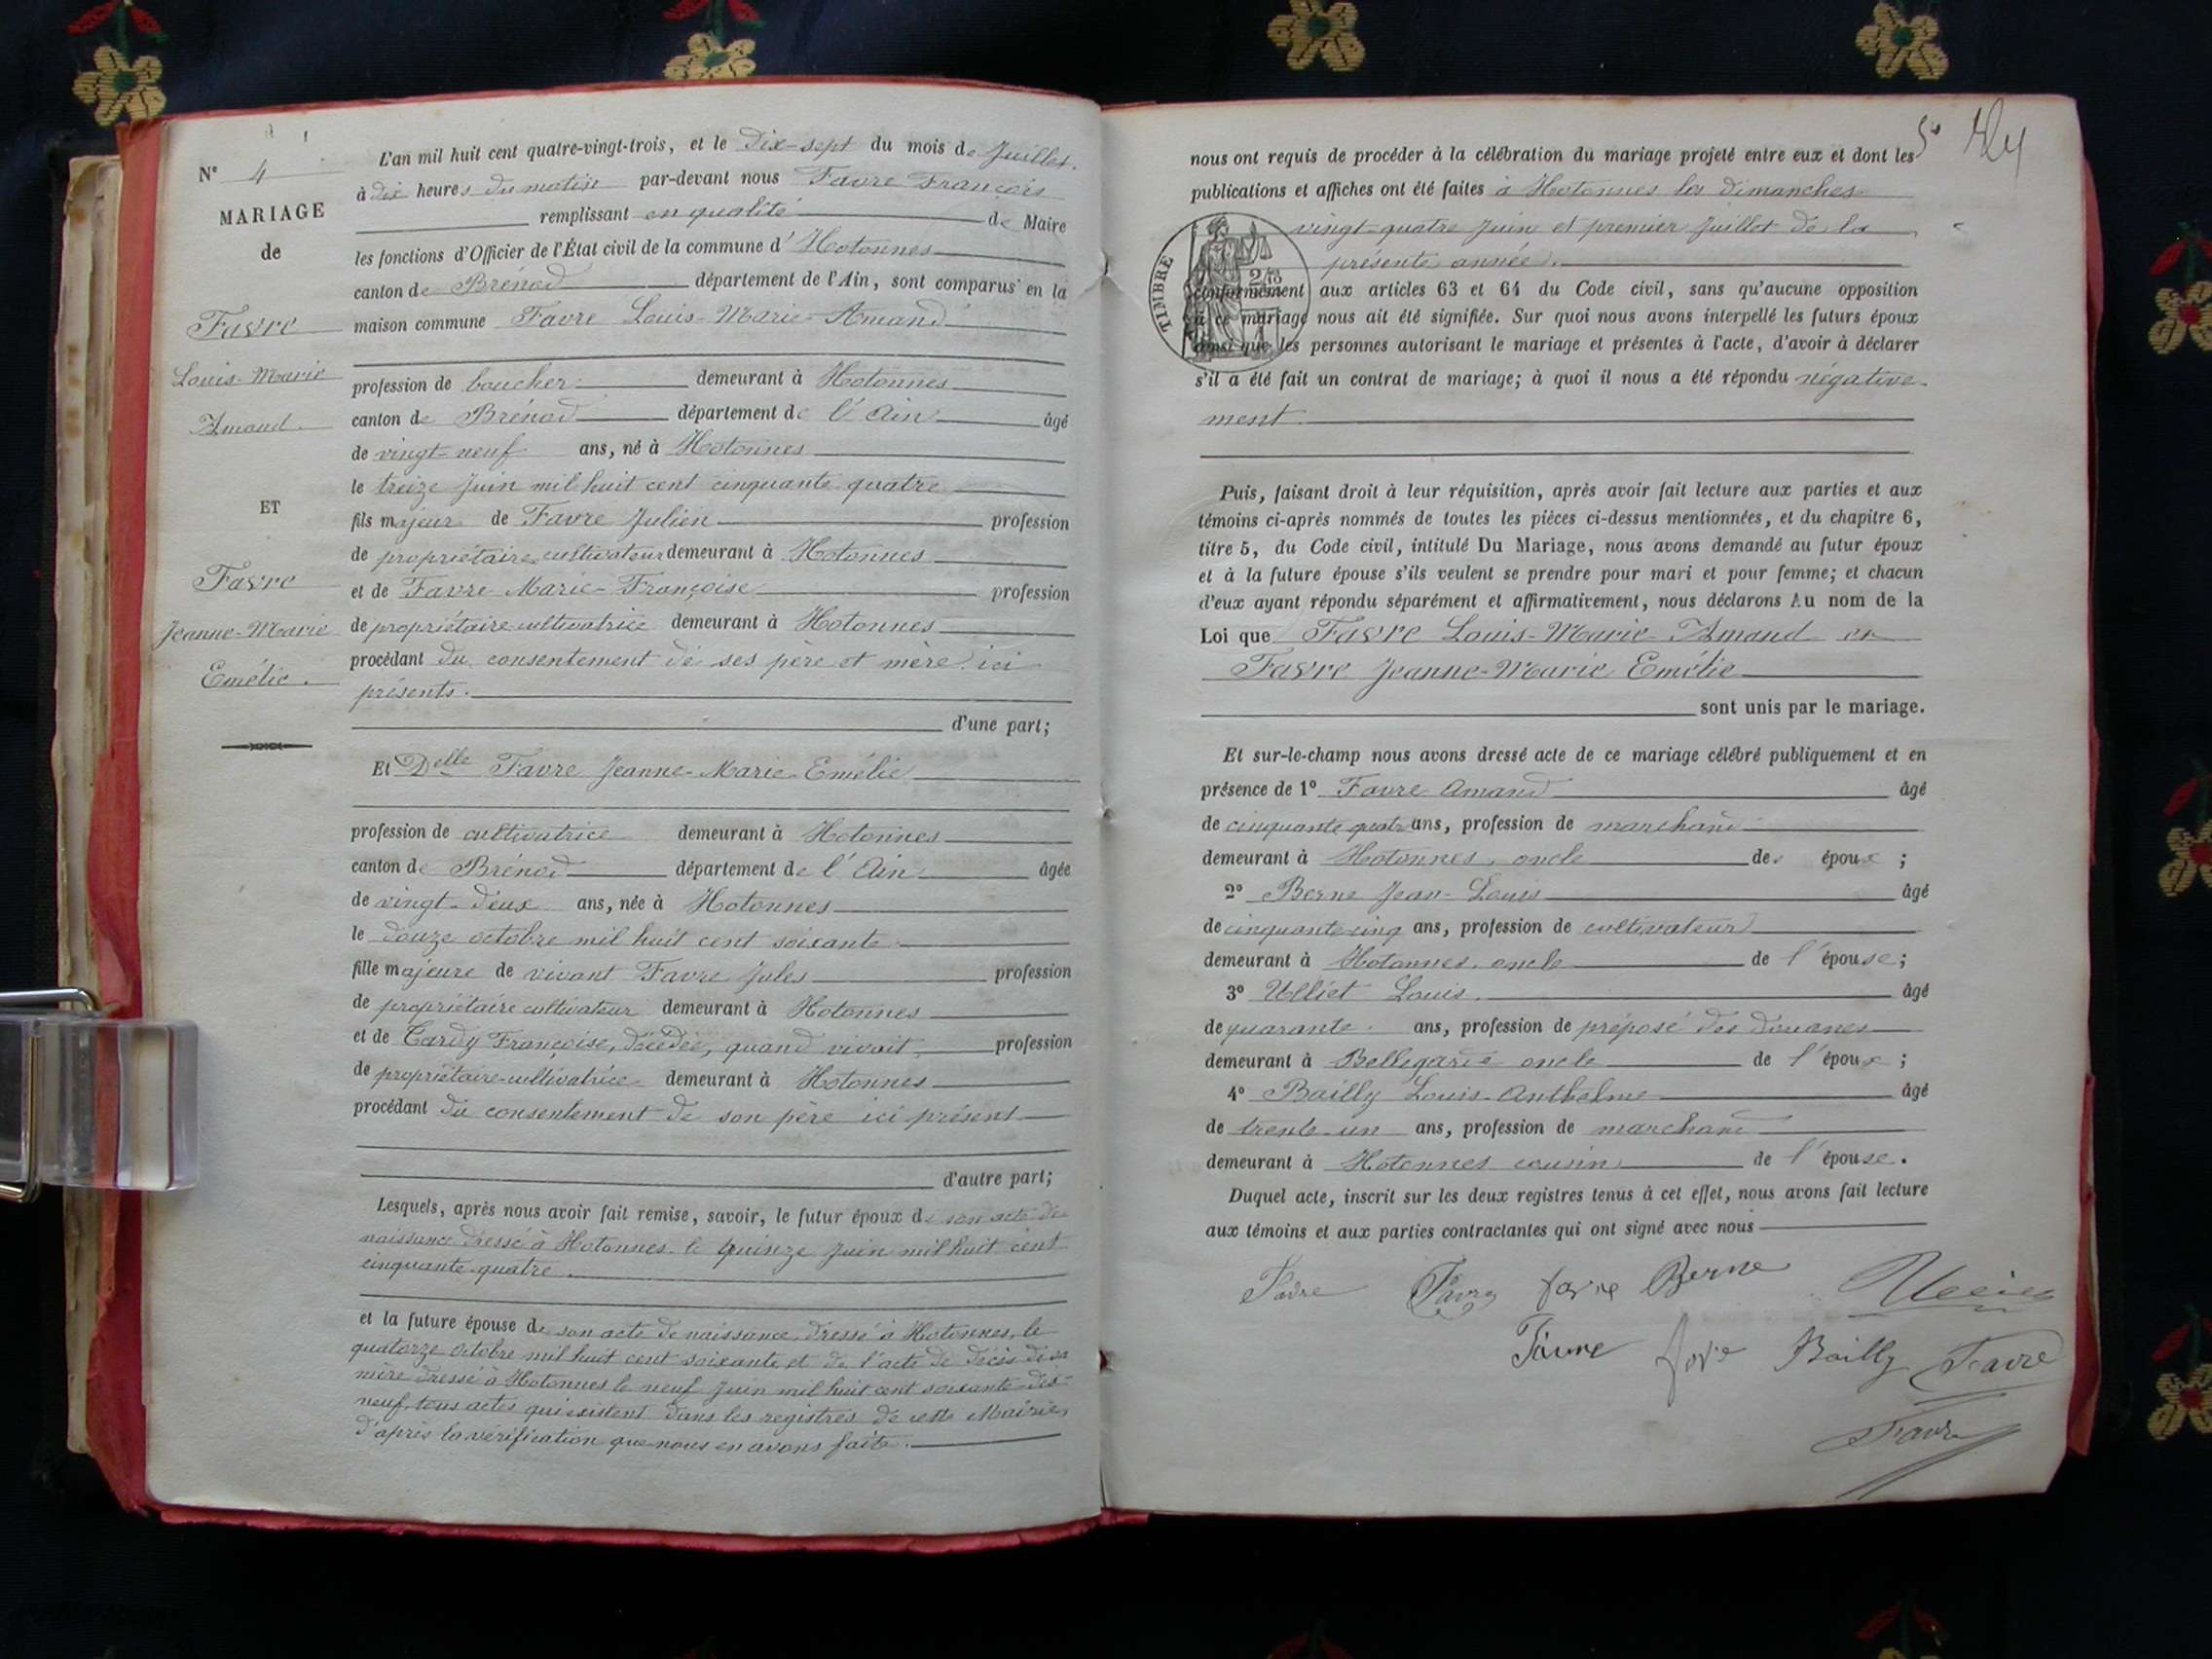 L'an mil huit cent quatre-vingt-trois, et le Dix-sept du mois de Juillet
à dix heures du matin par-devant nous Favre François
remplissant en qualité de Maire
les fonctions d'Officier de l'État civil de la commune d' Hotonnes
canton de Brénod département de l'Ain, sont comparus en la
maison commune Favre Louis-Marie-Amand
profession de boucher demeurant à Hotonnes
canton de Brénod département de l'Ain âgé
de vingt-neuf ans, né à Hotonnes
le treize Juin mil huit cent cinquante quatre
fils majeur de Favre Julien profession
de propriétaire cultivateur demeurant à Hotonnes
et de Favre Marie-Françoise profession
de propriétaire-cultivatrice demeurant à Hotonnes
procédant du consentement de ses père et mère ici
présents.
d'une part;
Et Delle Favre Jeanne-Marie-Emélie
profession de cultivatrice demeurant à Hotonnes
canton de Brénod département de l'Ain âgée
de vingt-deux ans, née à Hotonnes
le douze octobre mil huit cent soixante
fille majeure de vivant Favre Jules profession
de propriétaire cultivateur demeurant à Hotonnes
et de Cardy Françoise, décédée, quand vivait, profession
de propriétaire-cultivatrice demeurant à Hotonnes
procédant du consentement de son père ici présent
d'autre part;
Lesquels, après nous avoir fait remise, savoir, le futur époux de son acte de
naissance dressé à Hotonnes le quinze Juin mil huit cent
cinquante-quatre.
et la future épouse de son acte de naissance, dressé à Hotonnes, le
quatorze octobre mil huit cent soixante et de l'acte de décès de sa
mère dressé à Hotonnes le neuf Juin mil huit cent soixante-dix-
neuf, tous actes qui existent dans les registres de cette Mairie,
d'après la vérification que nous en avons faite.
N° 4
MARIAGE
de
Favre
Louis-Marie
Amand.
ET
Favre
Jeanne-Marie
Emélie.
nous ont requis de procéder à la célébration du mariage projeté entre eux et dont les
publications et affiches ont été faites à Hotonnes les dimanches
vingt-quatre Juin et premier Juillet de la
présente année.
TIMBRE
conformément aux articles 63 et 64 du Code civil, sans qu'aucune opposition
à ce mariage nous ait été signifiée. Sur quoi nous avons interpellé les futurs époux
ainsi que les personnes autorisant le mariage et présentes à l'acte, d'avoir à déclarer
s'il a été fait un contrat de mariage; à quoi il nous a été répondu négative-
ment.
Puis, faisant droit à leur réquisition, après avoir fait lecture aux parties et aux
témoins ci-après nommés de toutes les pièces ci-dessus mentionnées, et du chapitre 6,
titre 5, du Code civil, intitulé Du Mariage, nous avons demandé au futur époux
et à la future épouse s'ils veulent se prendre pour mari et pour femme; et chacun
d'eux ayant répondu séparément et affirmativement, nous déclarons Au nom de la
Loi que Favre Louis-Marie-Amand et
Favre Jeanne-Marie Emélie
sont unis par le mariage.
Et sur-le-champ nous avons dressé acte de ce mariage célébré publiquement et en
présence de 1° Favre Amand âgé
de cinquante quatre ans, profession de marchand
demeurant à Hotonnes, oncle des époux;
2° Berne Jean-Louis âgé
de cinquante-cinq ans, profession de cultivateur
demeurant à Hotonnes, oncle de l'épouse;
3° Ulliet Louis, âgé
de quarante ans, profession de préposé des Douanes
demeurant à Bellegarde oncle de l'époux;
4° Bailly Louis-Anthelme âgé
de trente-un ans, profession de marchand
demeurant à Hotonnes cousin de l'épouse.
Duquel acte, inscrit sur les deux registres tenus à cet effet, nous avons fait lecture
aux témoins et aux parties contractantes qui ont signé avec nous
Favre Favre favre Berne
Favre favre Bailly Favre
Favre